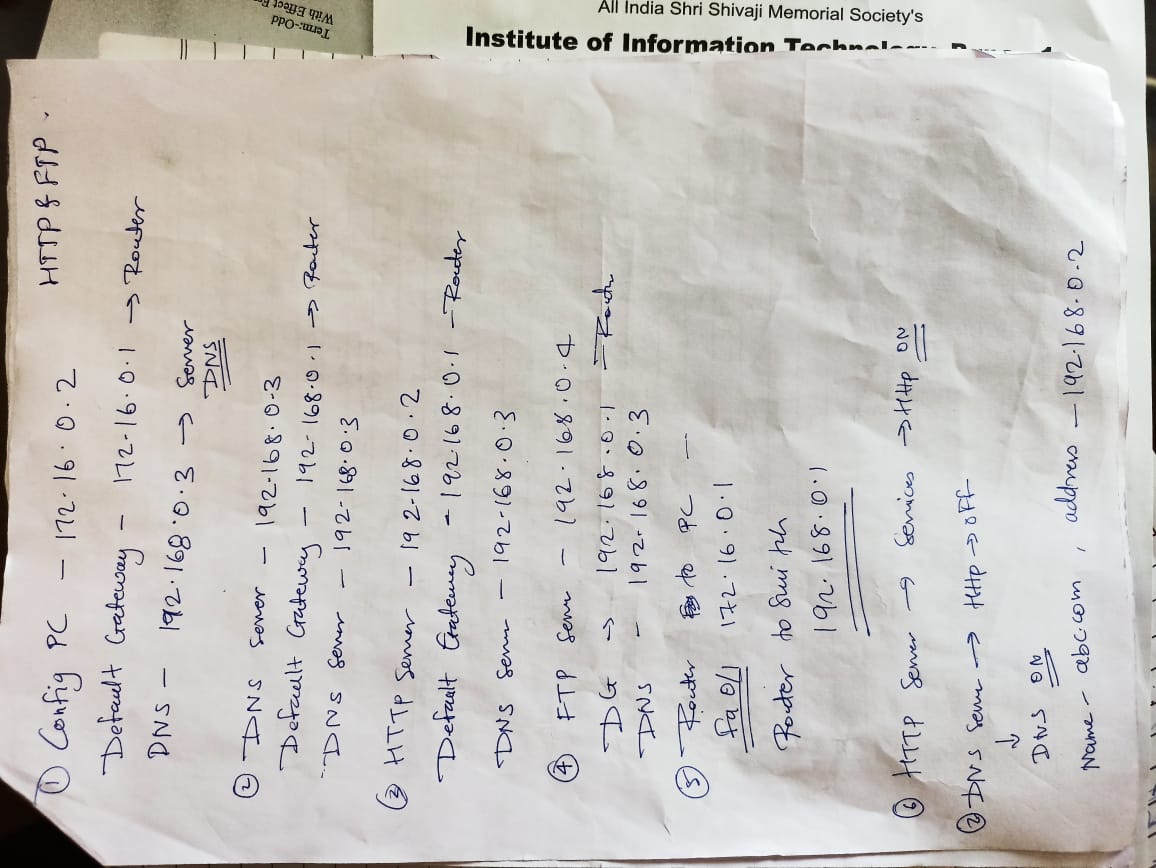 Term:-Odd
With Effect
All India Shri Shivaji Memorial Society's
Institute of Information
HTTP & FTP.
① Config PC - 172.16.0.2
Default Gateway - 172.16.0.1 → Router
DNS - 192.168.0.3 → Server
DNS
② DNS Server - 192.168.0.3
Default Gateway - 192.168.0.1 → Router
DNS Server - 192.168.0.3
③ HTTP Server - 192.168.0.2
Default Gateway - 192.168.0.1 - Router
DNS Server - 192.168.0.3
④ FTP Server - 192.168.0.4
DG → 192.168.0.1 - Router
DNS - 192.168.0.3
⑤ Router to PC -
fa0/1 172.16.0.1
Router to Switch
192.168.0.1
⑥ HTTP Server → Services → HTTP ON
⑦ DNS Server → HTTP → OFF
↓
DNS ON
Name - abc.com, address - 192.168.0.2